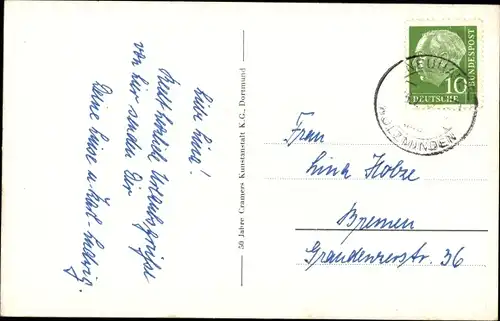 Liebe Lina!
Recht herzliche Urlaubsgrüsse
von hier senden Dir
Deine Luise u. Karl-Ludwig.
50 Jahre Cramers Kunstanstalt K.G., Dortmund
10
DEUTSCHE
BUNDESPOST
NEUHAUS
HOLZMINDEN
Frau
Lina Kobre
Bremen
Graudenzerstr. 36